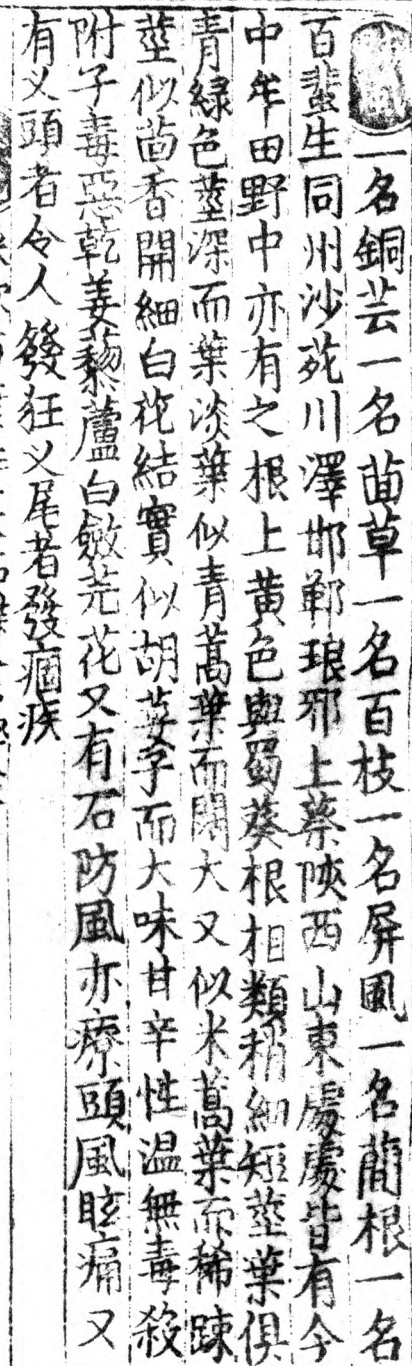 一名銅芸一名茴草一名百枝一名屏風一名蕳根一名
百蜚生同州沙苑川澤邯鄲琅邪上蔡陝西山東處處皆有今
中牟田野中亦有之根上黄色與蜀葵根相類稍細短莖葉俱
青緑色莖深而葉淡葉似青蒿葉而闊大又似米蒿葉而稀踈
莖似茴香開細白花結實似胡荽子而大味甘辛性温無毒殺
附子毒惡乾姜藜蘆白斂芫花又有石防風亦療頭風眩痛又
有乂頭者令人發狂乂尾者發痼疾